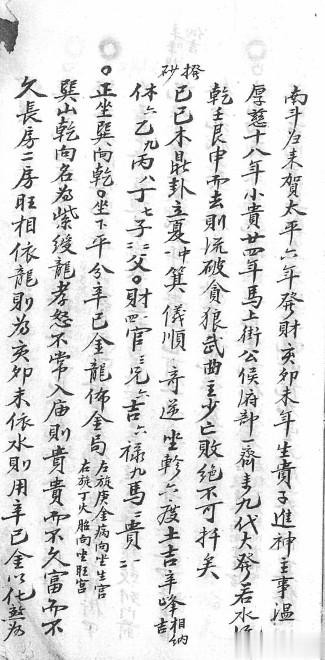 南斗归来賀太平六年發財亥卯未年生貴子進神主事溫
厚慈十八年小貴廿四年馬上街公侯府部一齊丰九代大發若水
乾壬艮申而去則流破貪狼武曲主少亡敗絶不可扦矣
撥砂
己巳木鼎卦立夏冲箕儀順奇逆坐軫六度土吉辛峰相纳吉
休六乙九丙八丁七子二父。財四官三兄六吉六禄九馬三貴二
。正坐巽向乾。坐下平分辛巳金龍佈金局左旋庚金病向坐生宫
右旋丁火胎向坐旺宫
巽山乾向名為紫綬龍孝怒不常入庙則貴貴而不久富而不
久長房二房旺相依龍則為亥卯未依水則用辛巳金以化煞為